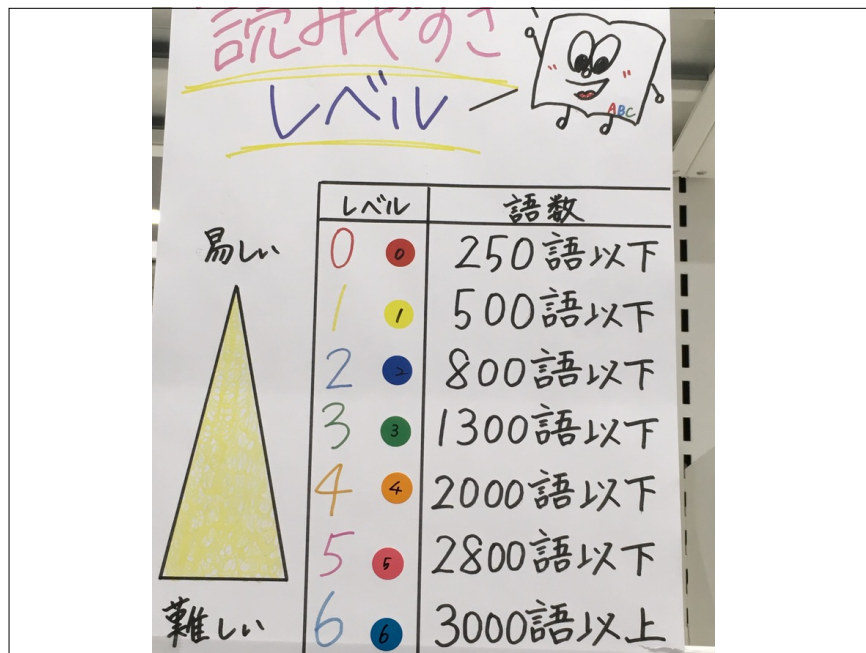 読みやすさ
レベル
ABC
レベル 語数
易しい
0 0 250語以下
1 1 500語以下
2 2 800語以下
3 3 1300語以下
4 4 2000語以下
5 5 2800語以下
難しい
6 6 3000語以上